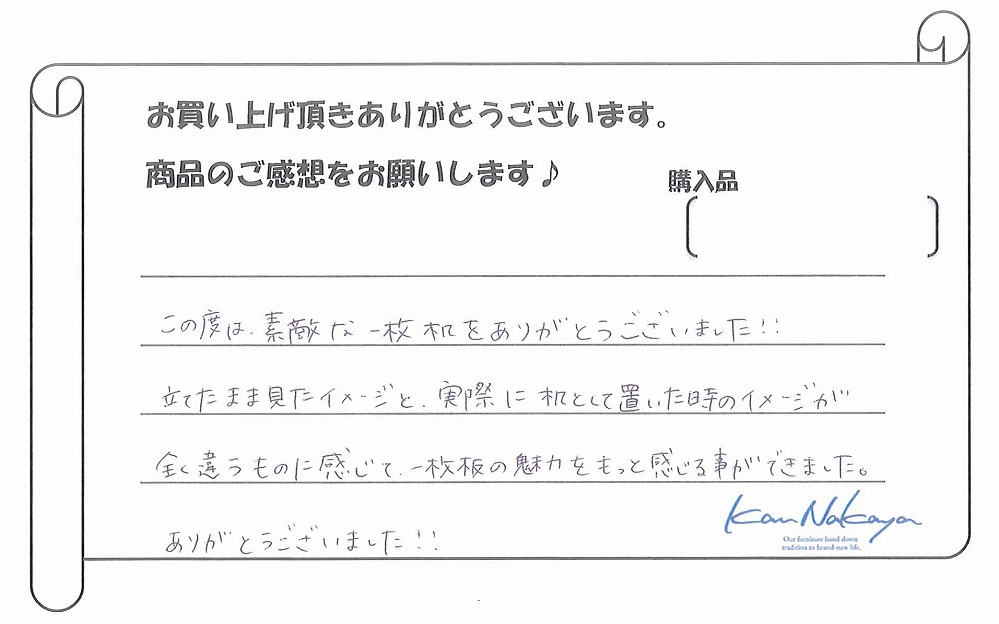 お買い上げ頂きありがとうございます。
商品のご感想をお願いします♪
購入品
この度は、素敵な一枚机をありがとうございました!!
立てたまま見たイメージと、実際に机として置いた時のイメージが
全く違うものに感じて、一枚板の魅力をもっと感じる事ができました。
ありがとうございました!!
Kan Nakaya
Our furniture hand down
tradition to brand-new life.